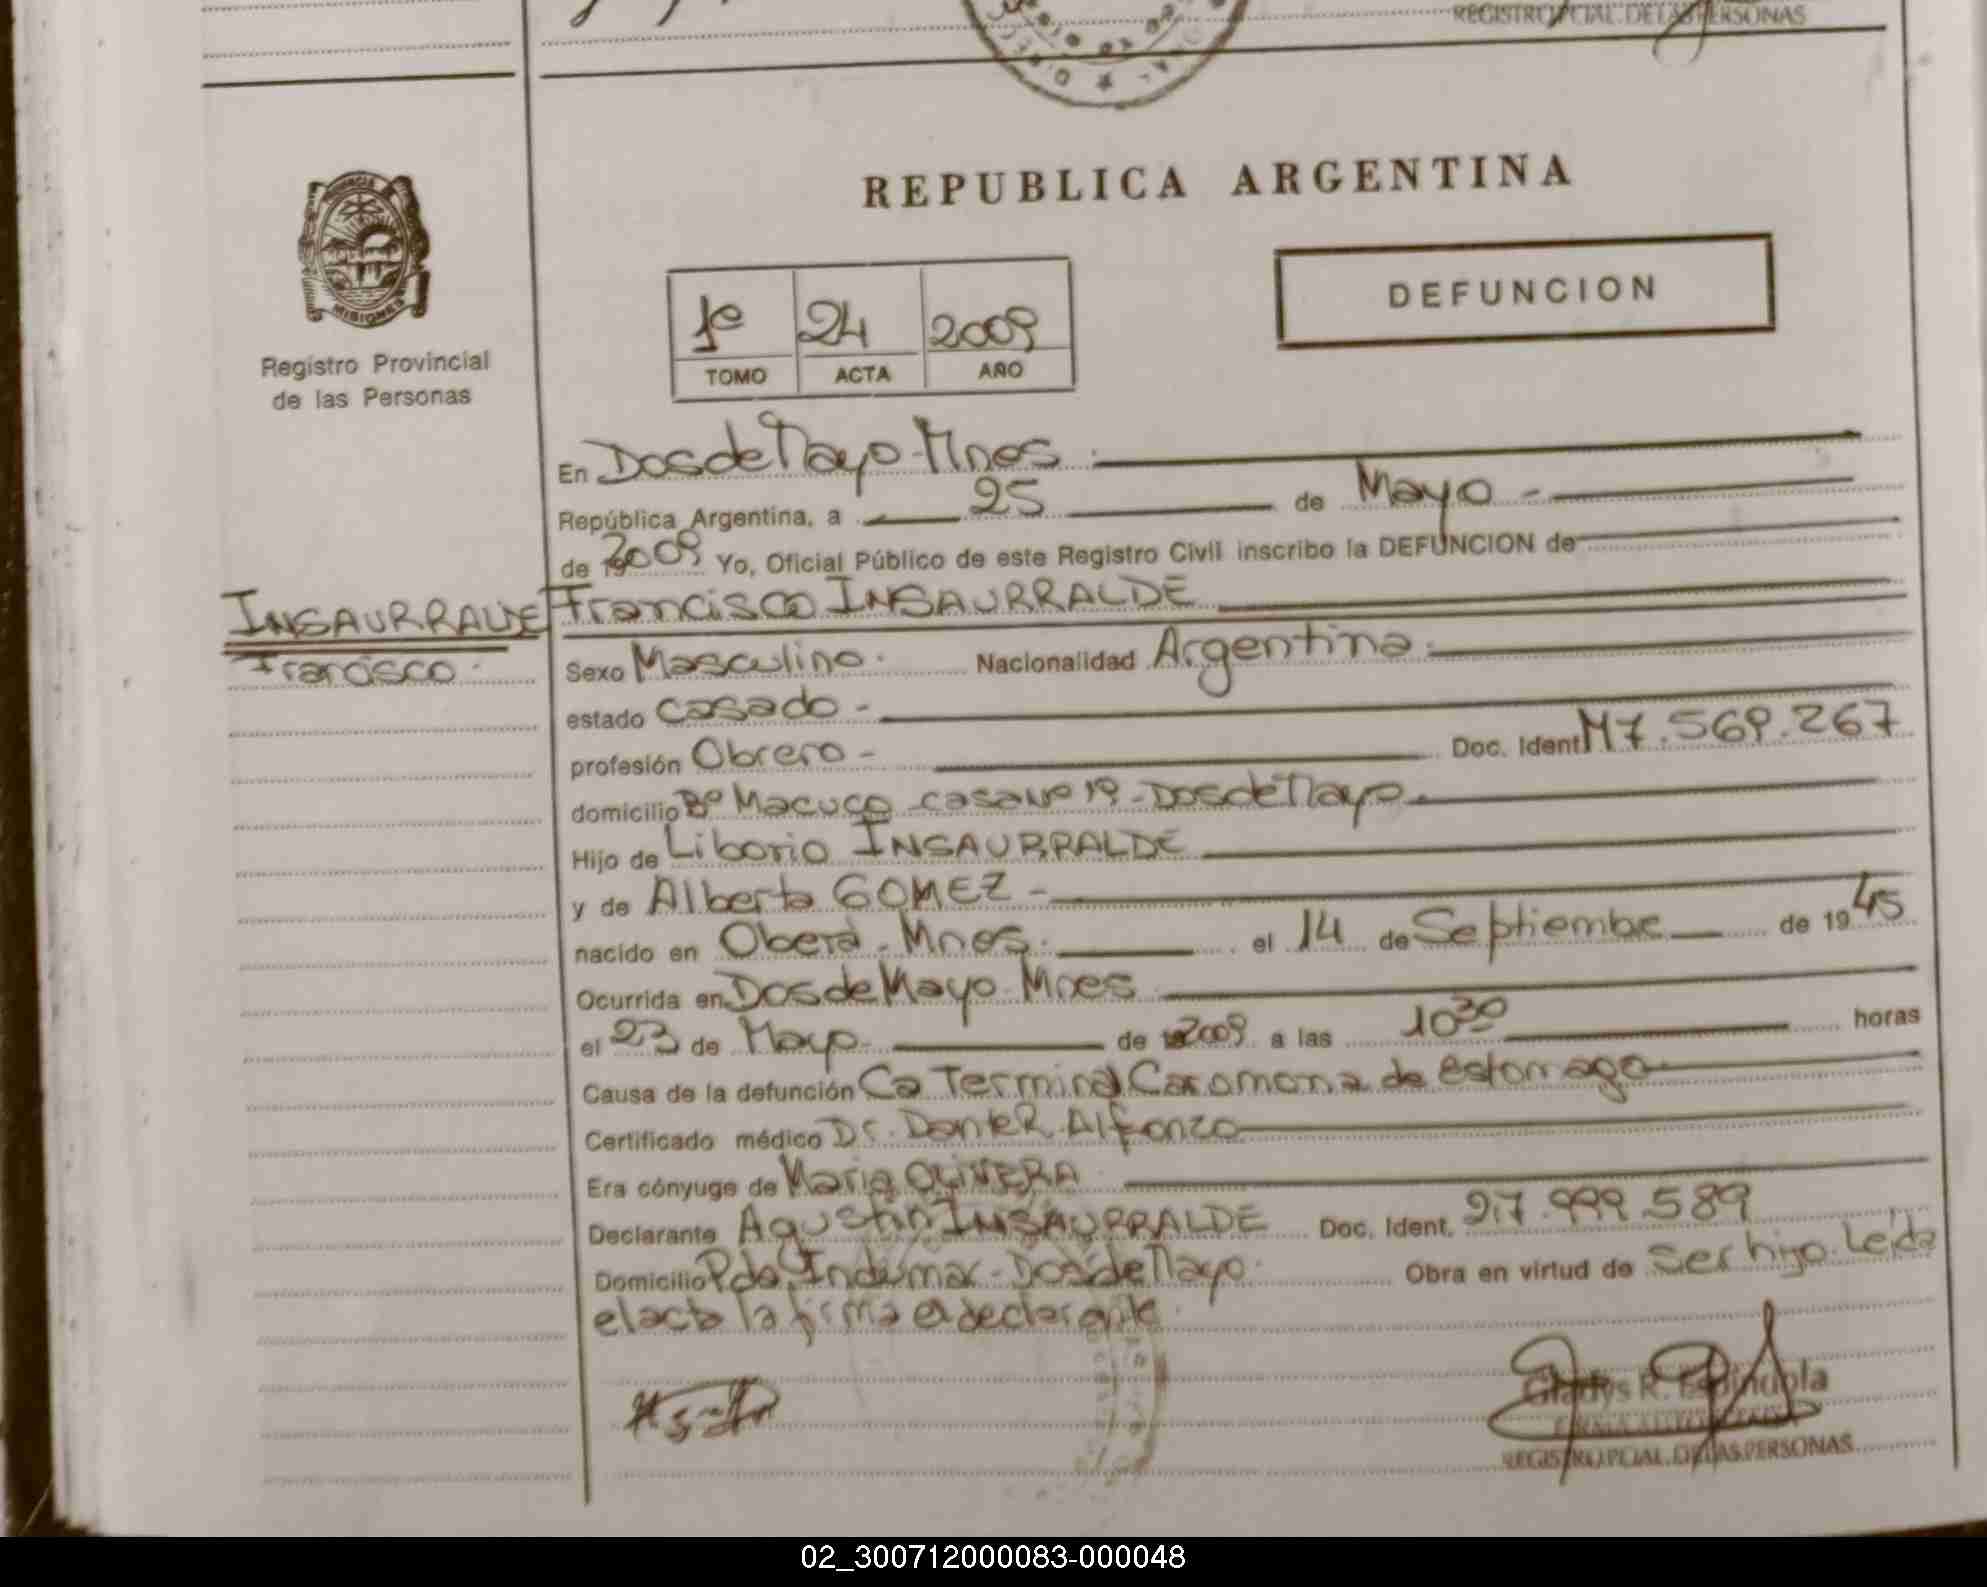 REGISTRO PCIAL. DE LAS PERSONAS
PROVINCIA
MISIONES
Registro Provincial
de las Personas
REPUBLICA ARGENTINA
DEFUNCION
1º 24 2009
TOMO ACTA AÑO
En Dos de Mayo - Mnes.
República Argentina, a 25 de Mayo -
de 19 2009 Yo, Oficial Público de este Registro Civil inscribo la DEFUNCION de
INSAURRALDE
Francisco.
Francisco INSAURRALDE
Sexo Masculino. Nacionalidad Argentina.
estado casado -
profesión Obrero - Doc. Ident. M7.569.267
domicilio Bº Macuco casa Nº 19 - Dos de Mayo.
Hijo de Liborio INSAURRALDE
y de Alberta GOMEZ -
nacido en Oberá - Mnes. el 14 de Septiembre de 1945
Ocurrida en Dos de Mayo - Mnes
el 23 de Mayo de 19 2009 a las 10 30 horas
Causa de la defunción Ca Terminal de estomago
Certificado médico Dr. Alfonzo
Era cónyuge de Maria OLIVERA
Declarante Agustin INSAURRALDE Doc. Ident. 27.999.589
Domicilio Pdo. Indumar - Dos de Mayo. Obra en virtud de ser hijo. Leída
el acta la firma el declarante.
Gladys R. Espindola
REGISTRO PCIAL. DE LAS PERSONAS
02_300712000083-000048